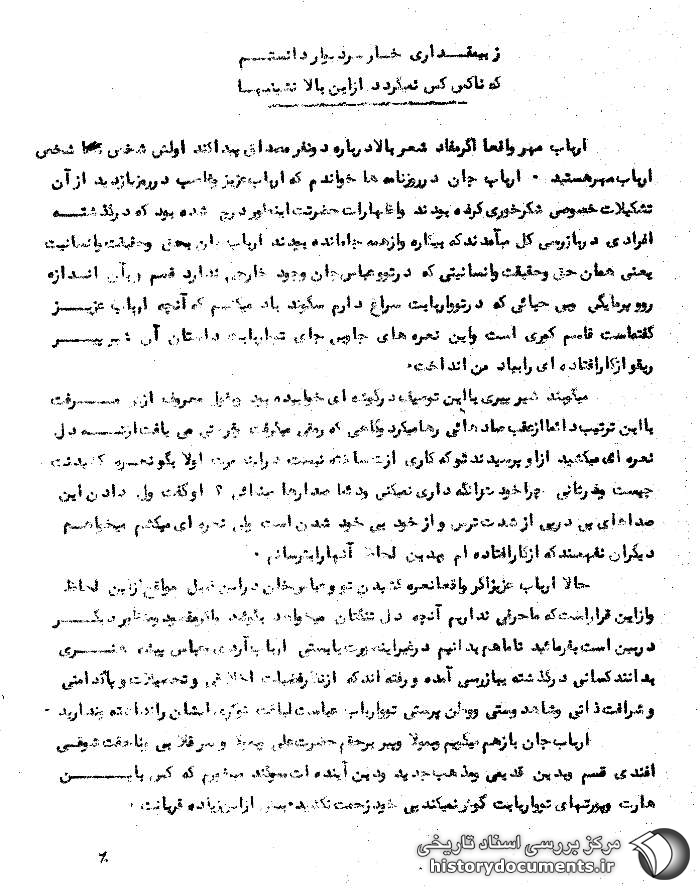 ز بیمقداری خار سر دیوار دانستم
که ناکس کس نمیگردد از این بالا نشینیها
ارباب مهر واقعا اگر مفاد شعر بالا درباره دونفر مصداق پیدا کند اولش شخص شخص
ارباب مهر هستید ۰ ارباب جان در روزنامه ها خواندم که ارباب عزیز در روز بازدید از آن
تشکیلات خصوصی شکر خوری کرده بودند و اظهارات حضرت اینطور درج شده بود که در گذشته
افرادی در بازرسی کل میآمدند که بیکاره و از همه جا مانده بودند ارباب جان بحق و حقیقت و انسانیت
یعنی همان حق و حقیقت و انسانیتی که در تو و عباس جان وجود خارجی ندارد قسم و بآن اندازه
رو و بی حیائی که در تو و اربابت سراغ دارم سوگند یاد میکنم که آنچه ارباب عزیز
گفته است کوری است و این نعره های جای تو و اربابت داستان آن شیر پیر
ریقو از کار افتاده ای را بیاد من انداخت۰
میگویند شیر پیری با این توصیف در گوشه ای خوابیده بود و بقول معروف از در میرفت
با این ترتیب دائما از عقب صداهائی رها میکرد و گاهی که رمقی میگرفت و فرصتی می یافت از ته دل
نعره ای میکشید از او پرسیدند تو که کاری از تو ساخته نیست در این صورت اولا بگو نعره کشیدنت
چیست و در ثانی چرا خودت را نگه داری نمیکنی و دائما صدا رها میدهی ؟ او گفت ول دادن این
صداهای پی در پی از شدت ترس و از خود بی خود شدن است ولی نعره ای میکشم میخواهم
دیگران نفهمند که از کار افتاده ام بدین لحاظ آنها را بترسانم ۰
حالا ارباب عزیز اگر واقعا نعره کشیدن تو و عباس خان در این قبیل مواقع از این لحاظ
و از این قرار است که ما حرفی نداریم آنچه دل تنگتان میخواهد بگوئید و اگر مقصود و منظور دیگر
در بین است بفرمائید تا ما هم بدانیم در غیر اینصورت بایستی ارباب و عباس پیشه هنری
بدانند کسانی در گذشته ببازرسی آمده و رفته اند که از نظر فضیلت اخلاقی و تحصیلات و پاکدامنی
و شرافت ذاتی و شاهدوستی و وطن پرستی تو و ارباب عباست لیاقت نوکری ایشان را نداشته و ندارید ۰
ارباب جان باز هم میگویم و بمولا و پیر برحقم حضرت علی و شوقی
افندی قسم و بدین قدیمی و مذهب جدید و دین آینده ات سوگند میخورم که کس باین
هارت و پورتهای تو و اربابت گوش نمیکند بی خود زحمت نکشید بیش از این زیاده قربانت ۰
۶۰
مرکز بررسی اسناد تاریخی
historydocuments.ir